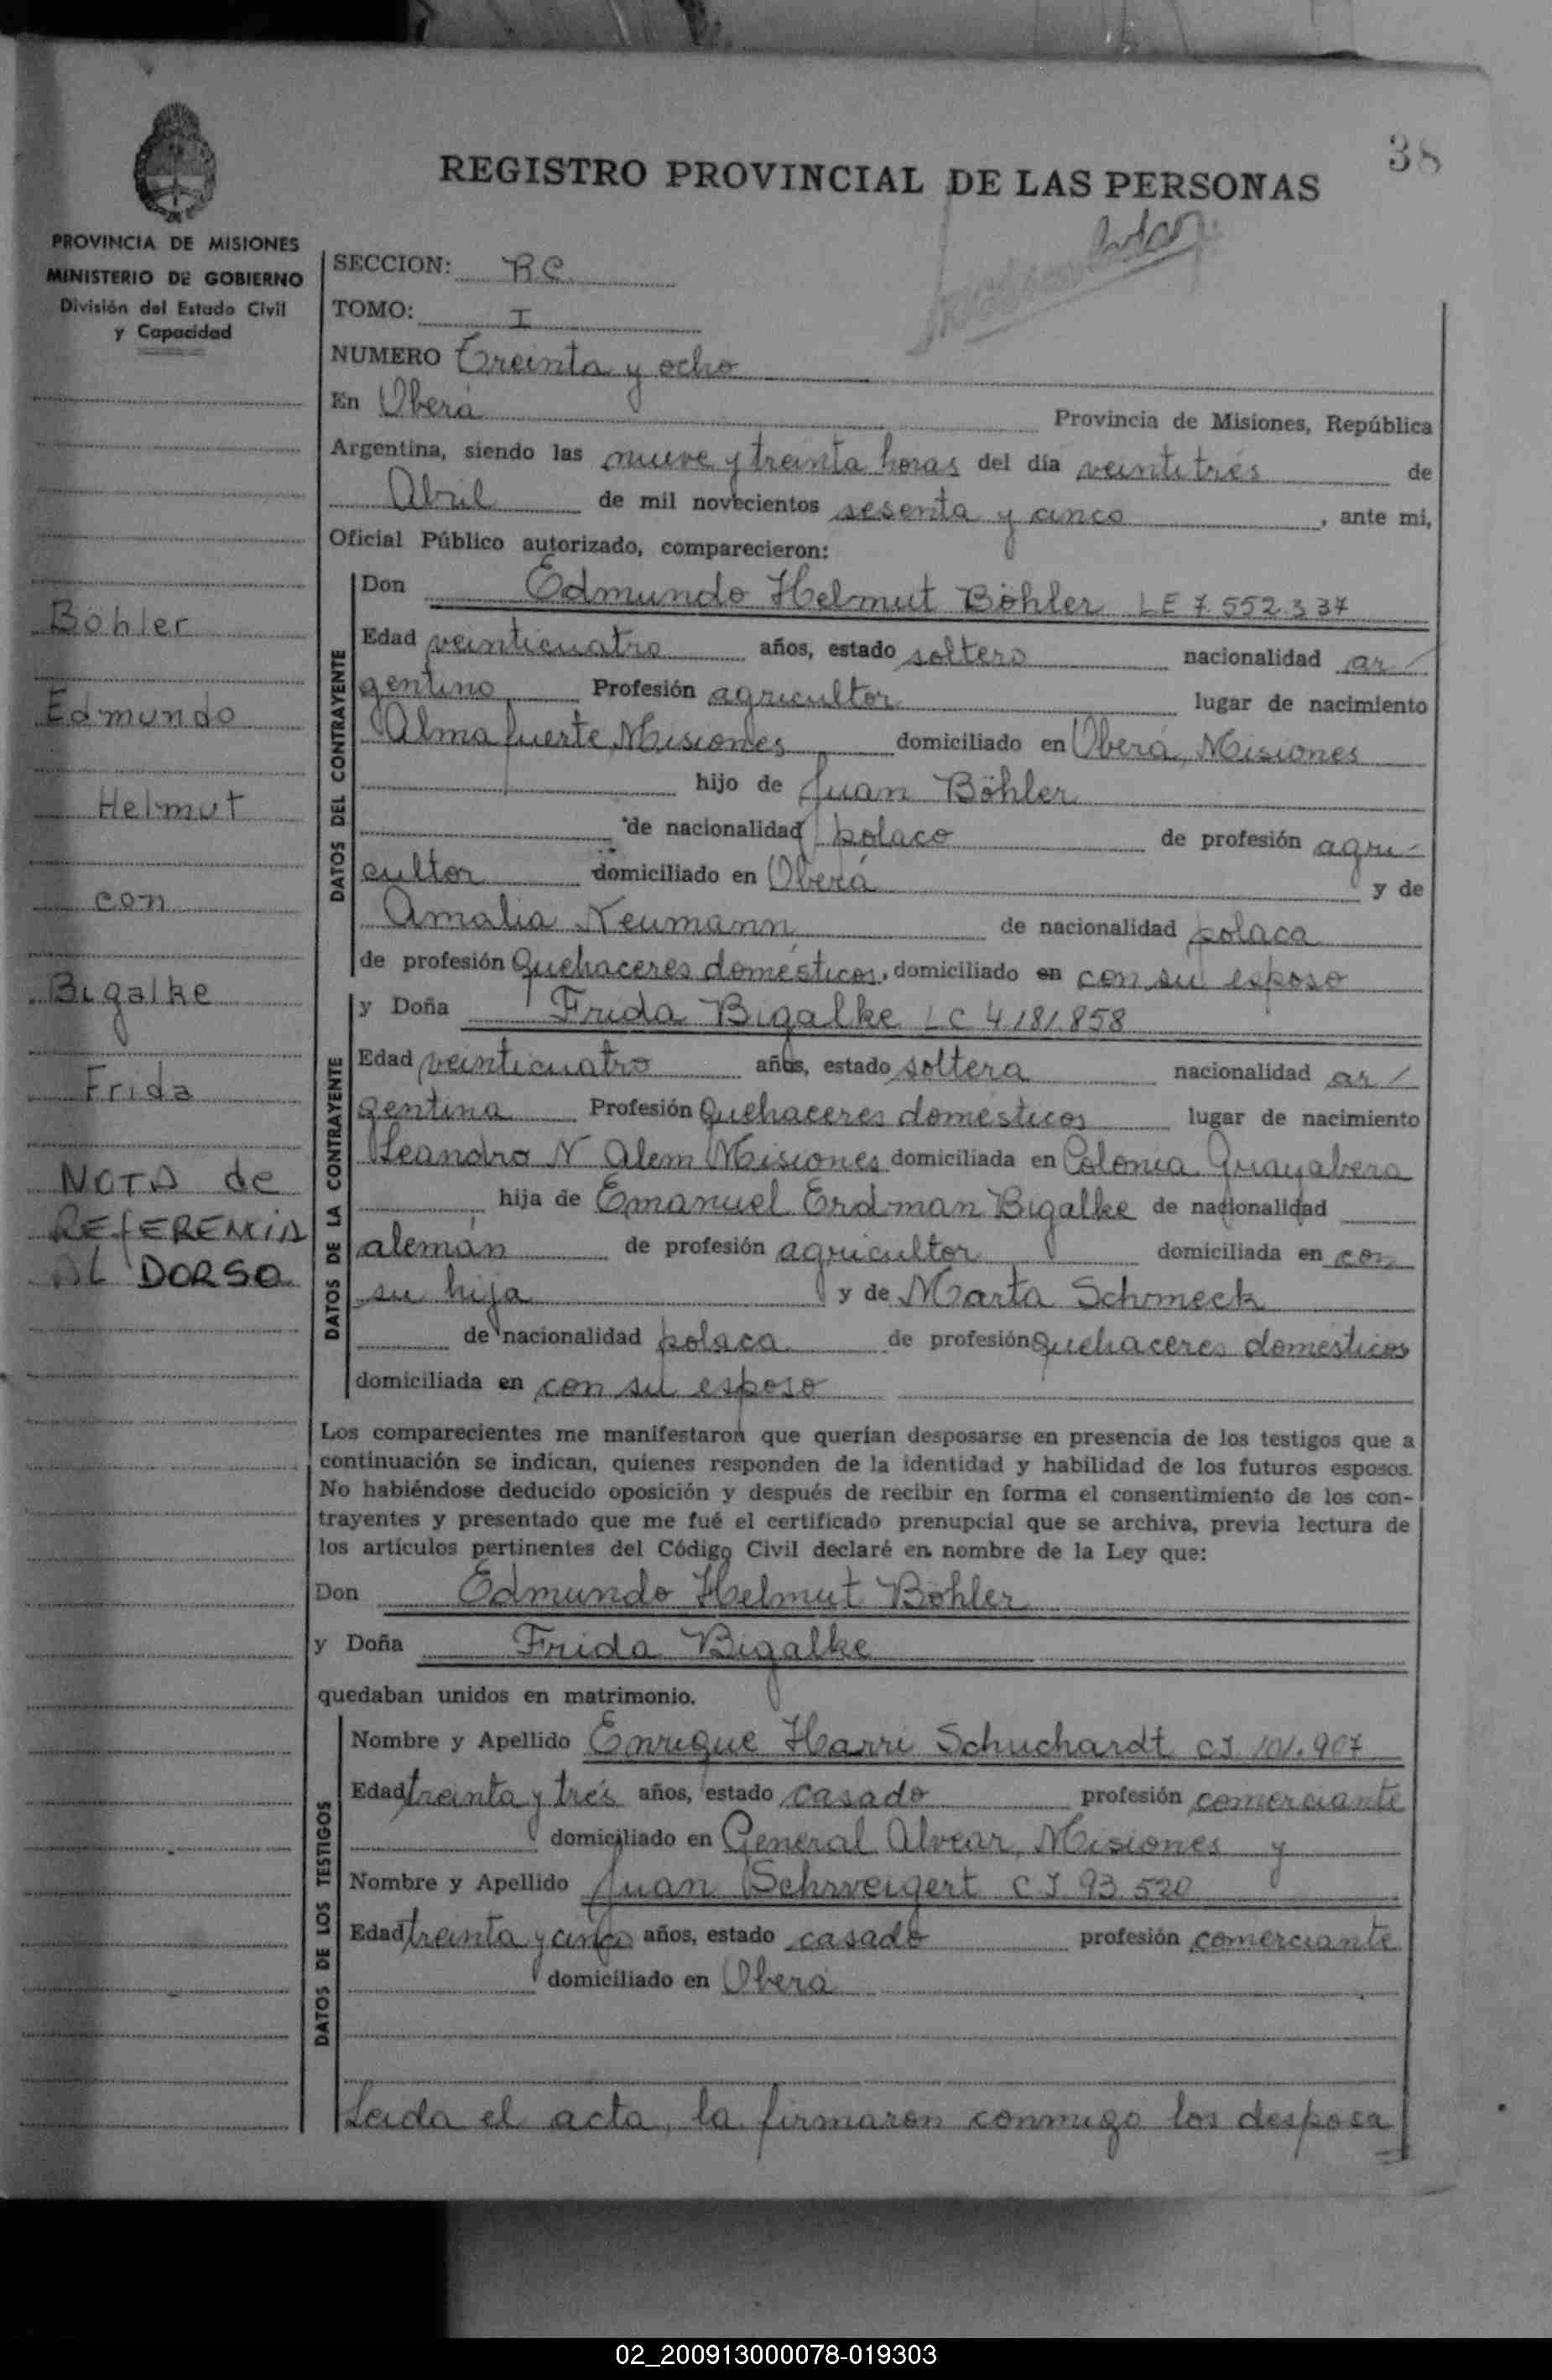 38
REGISTRO PROVINCIAL DE LAS PERSONAS
PROVINCIA DE MISIONES
MINISTERIO DE GOBIERNO
División del Estado Civil
y Capacidad
Böhler
Edmundo
Helmut
con
Bigalke
Frida
NOTA de
REFERENCIA
AL DORSO
SECCION: RC
TOMO: I
NUMERO Treinta y ocho
En Oberá Provincia de Misiones, República
Argentina, siendo las nueve y treinta horas del día veintitrés de
Abril de mil novecientos sesenta y cinco, ante mi,
Oficial Público autorizado, comparecieron:
DATOS DEL CONTRAYENTE
Don Edmundo Helmut Böhler LE 7.552.337
Edad veinticuatro años, estado soltero nacionalidad ar/
gentino Profesión agricultor lugar de nacimiento
Almafuerte, Misiones domiciliado en Oberá, Misiones
hijo de Juan Böhler
de nacionalidad polaco de profesión agri-
cultor domiciliado en Oberá y de
Amalia Neumann de nacionalidad polaca
de profesión Quehaceres domésticos, domiciliado en con su esposo
DATOS DE LA CONTRAYENTE
y Doña Frida Bigalke LC 4.181.858
Edad veinticuatro años, estado soltera nacionalidad ar/
gentina Profesión Quehaceres domésticos lugar de nacimiento
Leandro N Alem Misiones domiciliada en Colonia Guayabera
hija de Emanuel Erdman Bigalke de nacionalidad
alemán de profesión agricultor domiciliada en con
su hija y de Marta Schmeck
de nacionalidad polaca de profesión quehaceres domésticos
domiciliada en con su esposo
Los comparecientes me manifestaron que querían desposarse en presencia de los testigos que a
continuación se indican, quienes responden de la identidad y habilidad de los futuros esposos.
No habiéndose deducido oposición y después de recibir en forma el consentimiento de los con-
trayentes y presentado que me fué el certificado prenupcial que se archiva, previa lectura de
los artículos pertinentes del Código Civil declaré en nombre de la Ley que:
Don Edmundo Helmut Böhler
y Doña Frida Bigalke
quedaban unidos en matrimonio.
DATOS DE LOS TESTIGOS
Nombre y Apellido Enrique Harri Schuchardt CI 101.907
Edad treinta y trés años, estado casado profesión comerciante
domiciliado en General Alvear, Misiones y
Nombre y Apellido Juan Schweigert CI 93.520
Edad treinta y cinco años, estado casado profesión comerciante
domiciliado en Oberá
Leida el acta, la firmaron conmigo los desposa
02_200913000078-019303